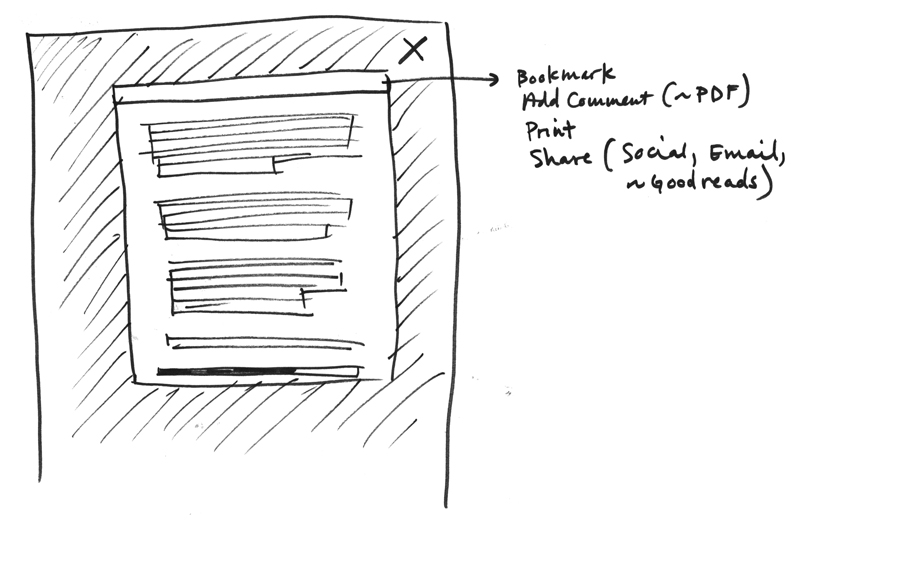 X
Bookmark
Add Comment (~PDF)
Print
Share (Social, Email,
~Goodreads)